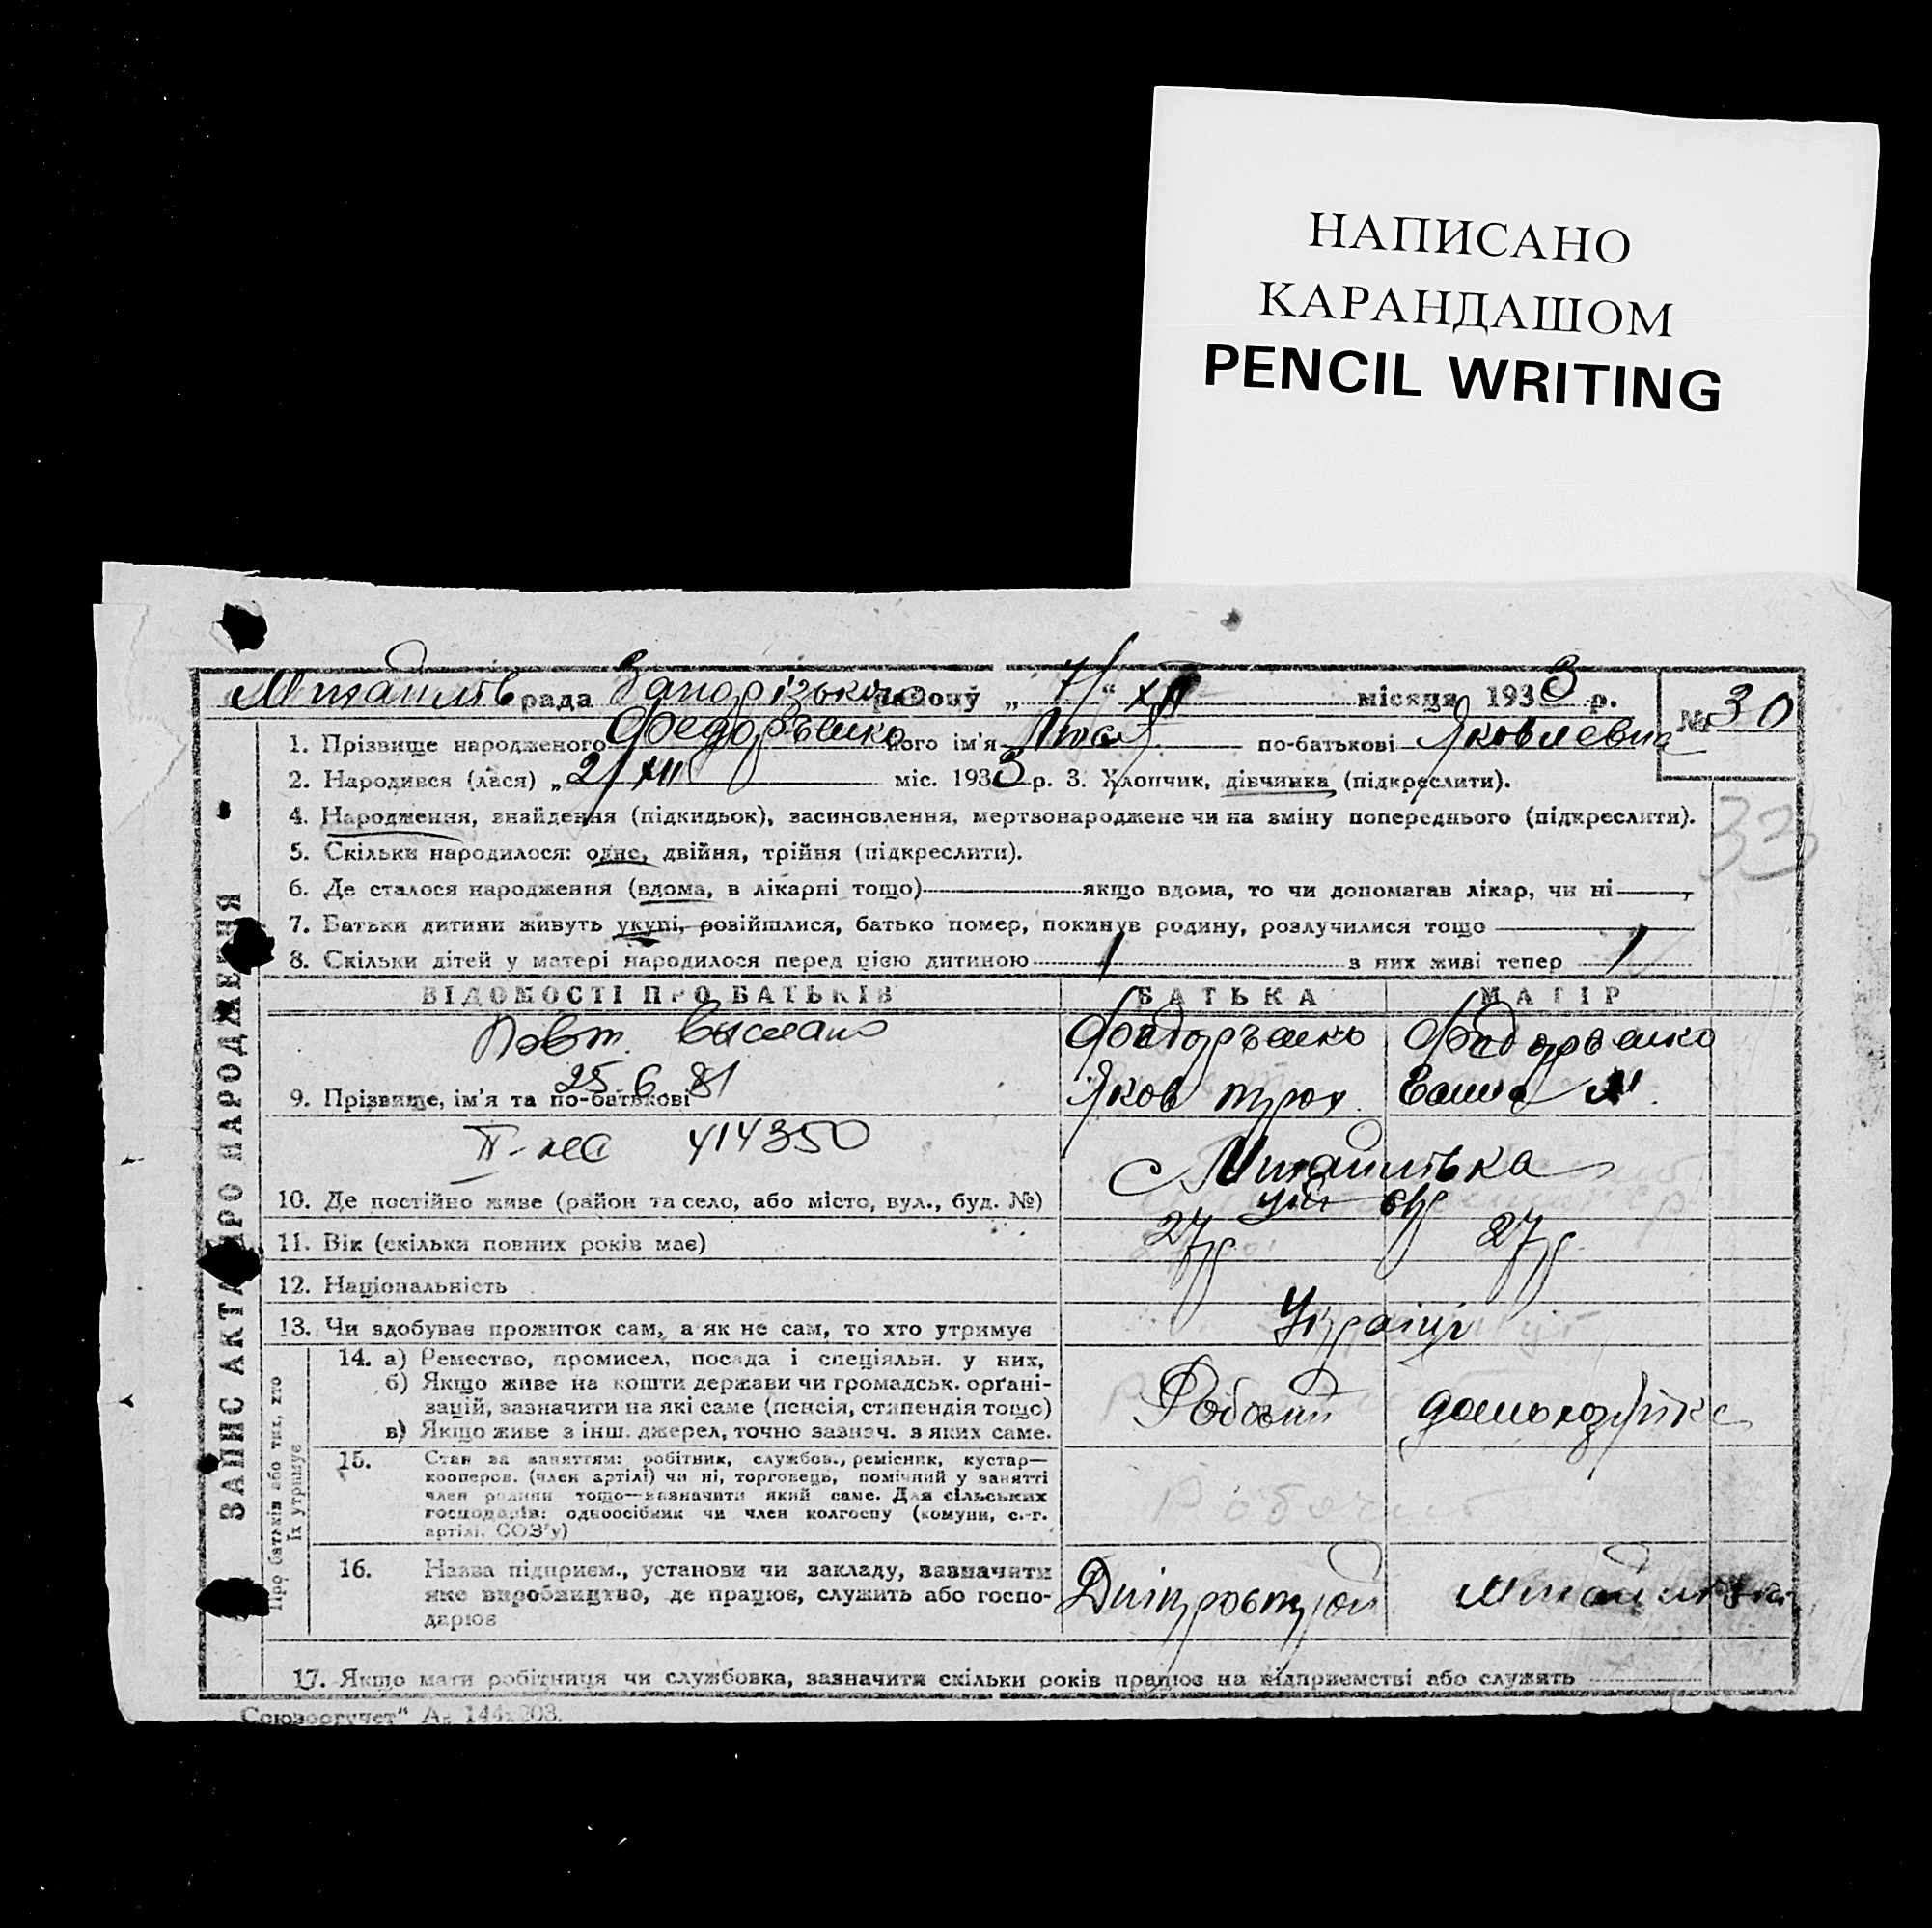 НАПИСАНО
КАРАНДАШОМ
PENCIL WRITING
рада Запорізького району „ 7/“ XII місяця 1933 р. № 30
1. Прізвище народженого його ім'я Люся по-батькові Яковлевна
2. Народився (лася) „ 2/XII міс. 1933 р. 3. Хлопчик, дівчинка (підкреслити).
4. Народження, знайдення (підкидьок), засиновлення, мертвонароджене чи на зміну попереднього (підкреслити).
33
5. Скільки народилося: одне, двійня, трійня (підкреслити).
6. Де сталося народження (вдома, в лікарні тощо) якщо вдома, то чи допомагав лікар, чи ні
7. Батьки дитини живуть укупі, розійшлися, батько помер, покинув родину, розлучилися тощо
8. Скільки дітей у матері народилося перед цією дитиною 1 з них живі тепер 1
ЗАПИС АКТА ПРО НАРОДЖЕННЯ
ВІДОМОСТІ ПРО БАТЬКІВ БАТЬКА МАТІР
Повт. выслано
25 6 81
9. Прізвище, ім'я та по-батькові Яков
414350
10. Де постійно живе (район та село, або місто, вул., буд. №)
11. Вік (скільки повних років має) 27р. 27р.
12. Національність
13. Чи здобуває прожиток сам, а як не сам, то хто утримує Українці
Про батьків або тих, хто їх утримує
14. а) Ремество, промисел, посада і спеціяльн. у них,
б) Якщо живе на кошти держави чи громадськ. орґані-
зацій, зазначити на які саме (пенсія, стипендія тощо)
в) Якщо живе з інш. джерел, точно зазнач. з яких саме.
Робочий
15. Стан за заняттям: робітник, службов., ремісник, кустар—
кооперов. (член артілі) чи ні, торговець, помічний у занятті
член родини тощо—зазначити який саме. Для сільських
господарів: одноосібник чи член колгоспу (комуни, с.-г.
артілі, СОЗ'у)
Робочий
16. Назва підприєм., установи чи закладу, зазначити
яке виробництво, де працює, служить або госпо-
дарює
Дніпрострой
17. Якщо мати робітниця чи службовка, зазначити скільки років працює на підприємстві або служить